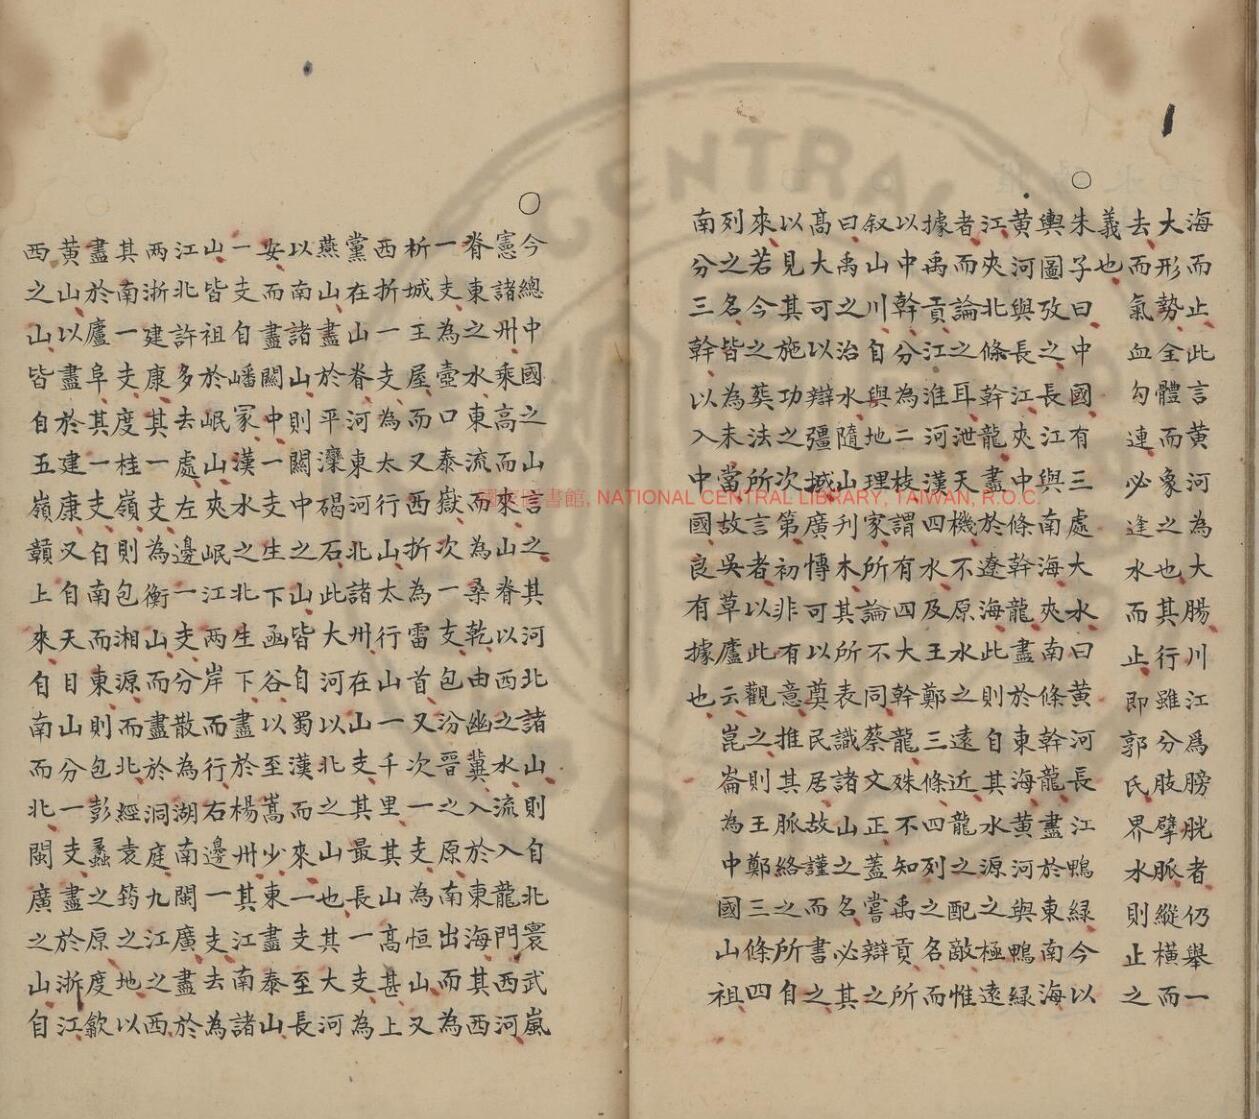 海而止此言黃河為大腸川江爲膀胱者仍舉一
大形勢全體而象之也其行雖分肢擘脈縱橫而
去而氣血勾連必逢水而止即郭氏界水則止之
義也
朱子曰中國有三處大水曰黃河長江鴨綠今以
輿圖攷之長江與南海夾南條幹龍盡於東南海
黃河與長江夾中條幹龍盡於東海黃河與鴨綠
江夾北條幹龍盡於遼海此則自其水源之極遠
者而論之耳泄天機不原水之遠近龍之配敵惟
據禹貢江淮河漢四水及王鄭三條四列之名而
以中幹分為二枝謂有四大幹龍殊不知禹貢所
叙山川自與地理家所論不同蔡文正蓋嘗辯之
曰禹之治水隨山刋木其所表識諸山之名必其
高大可以辯疆域廣愽可以奠民居故謹而書之
以見其施功之次第初非有意推其脈絡之所自
來若今之葬法所言者以此觀之則王鄭三條四
列之名皆為未當故吳草廬云崑崙為中國山祖
南分三幹以入中國良有據也
今總中國之山言之其河北諸山則自北寰武嵐
憲諸州乘高而來山脊以西之水流入龍門西河
脊東之水東流而為桑乾由幽冀入於東海其西
一支為壺口泰嶽次一支包汾晉之原南出而為
析城王屋而又西折為雷首又次一支為恒山又
西折一支為太行山太行山一千里其山高甚上
黨在山脊河東河北諸州在山支其最長一支為
燕山盡於平灤碣石此大河以北之山也其大河
以南諸山則關中之山皆自蜀漢而來一支至長
安而盡關中一支生下函谷以至嵩少東盡泰山
一支自嶓冢漢水之北生下盡於楊州其江南諸
山皆祖於岷山夾岷江兩岸而行右邊一支去為
江北許多去處左邊一支分散為湖南閩廣盡於
两浙建康其一支為衡山而盡於洞庭九江之西
其南一支度桂嶺則包湘源而北經袁筠之地以
盡於廬阜其一支自南而東則包彭蠡之原度歙
黃山以盡於建康又自天目山分一支盡於浙江
西之山皆自五嶺贛上來自南而北閩廣之山自
國家圖書館, NATIONAL CENTRAL LIBRARY, TAIWAN, R.O.C.